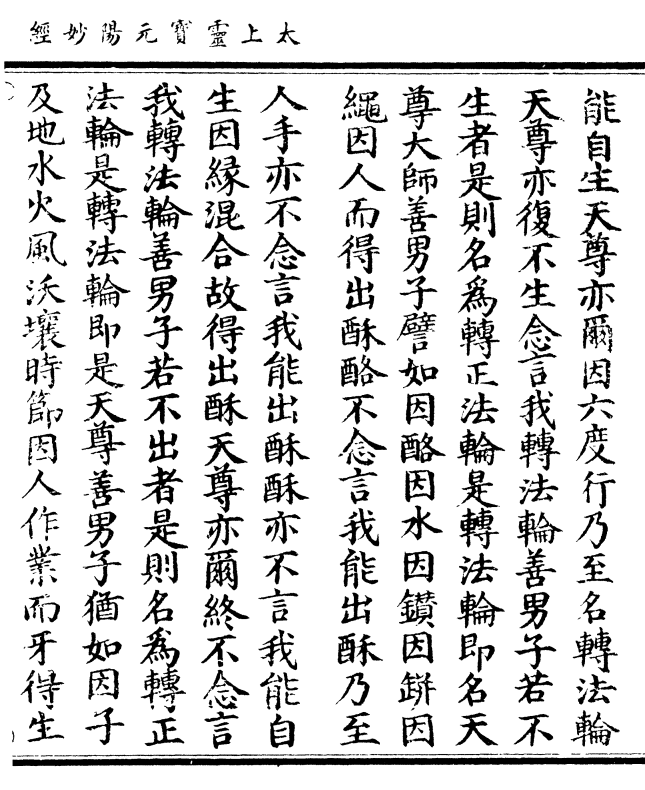 太上靈寶元陽妙經
能自生天尊亦爾因六度行乃至名轉法輪
天尊亦復不生念言我轉法輪善男子若不
生者是則名爲轉正法輪是轉法輪即名天
尊大師善男子譬如因酪因水因鑚因缾因
繩因人而得出酥酪不念言我能出酥乃至
人手亦不念言我能出酥酥亦不言我能自
生因緣混合故得出酥天尊亦爾終不念言
我轉法輪善男子若不出者是則名爲轉正
法輪是轉法輪即是天尊善男子猶如因子
及地水火風沃壤時節因人作業而牙得生